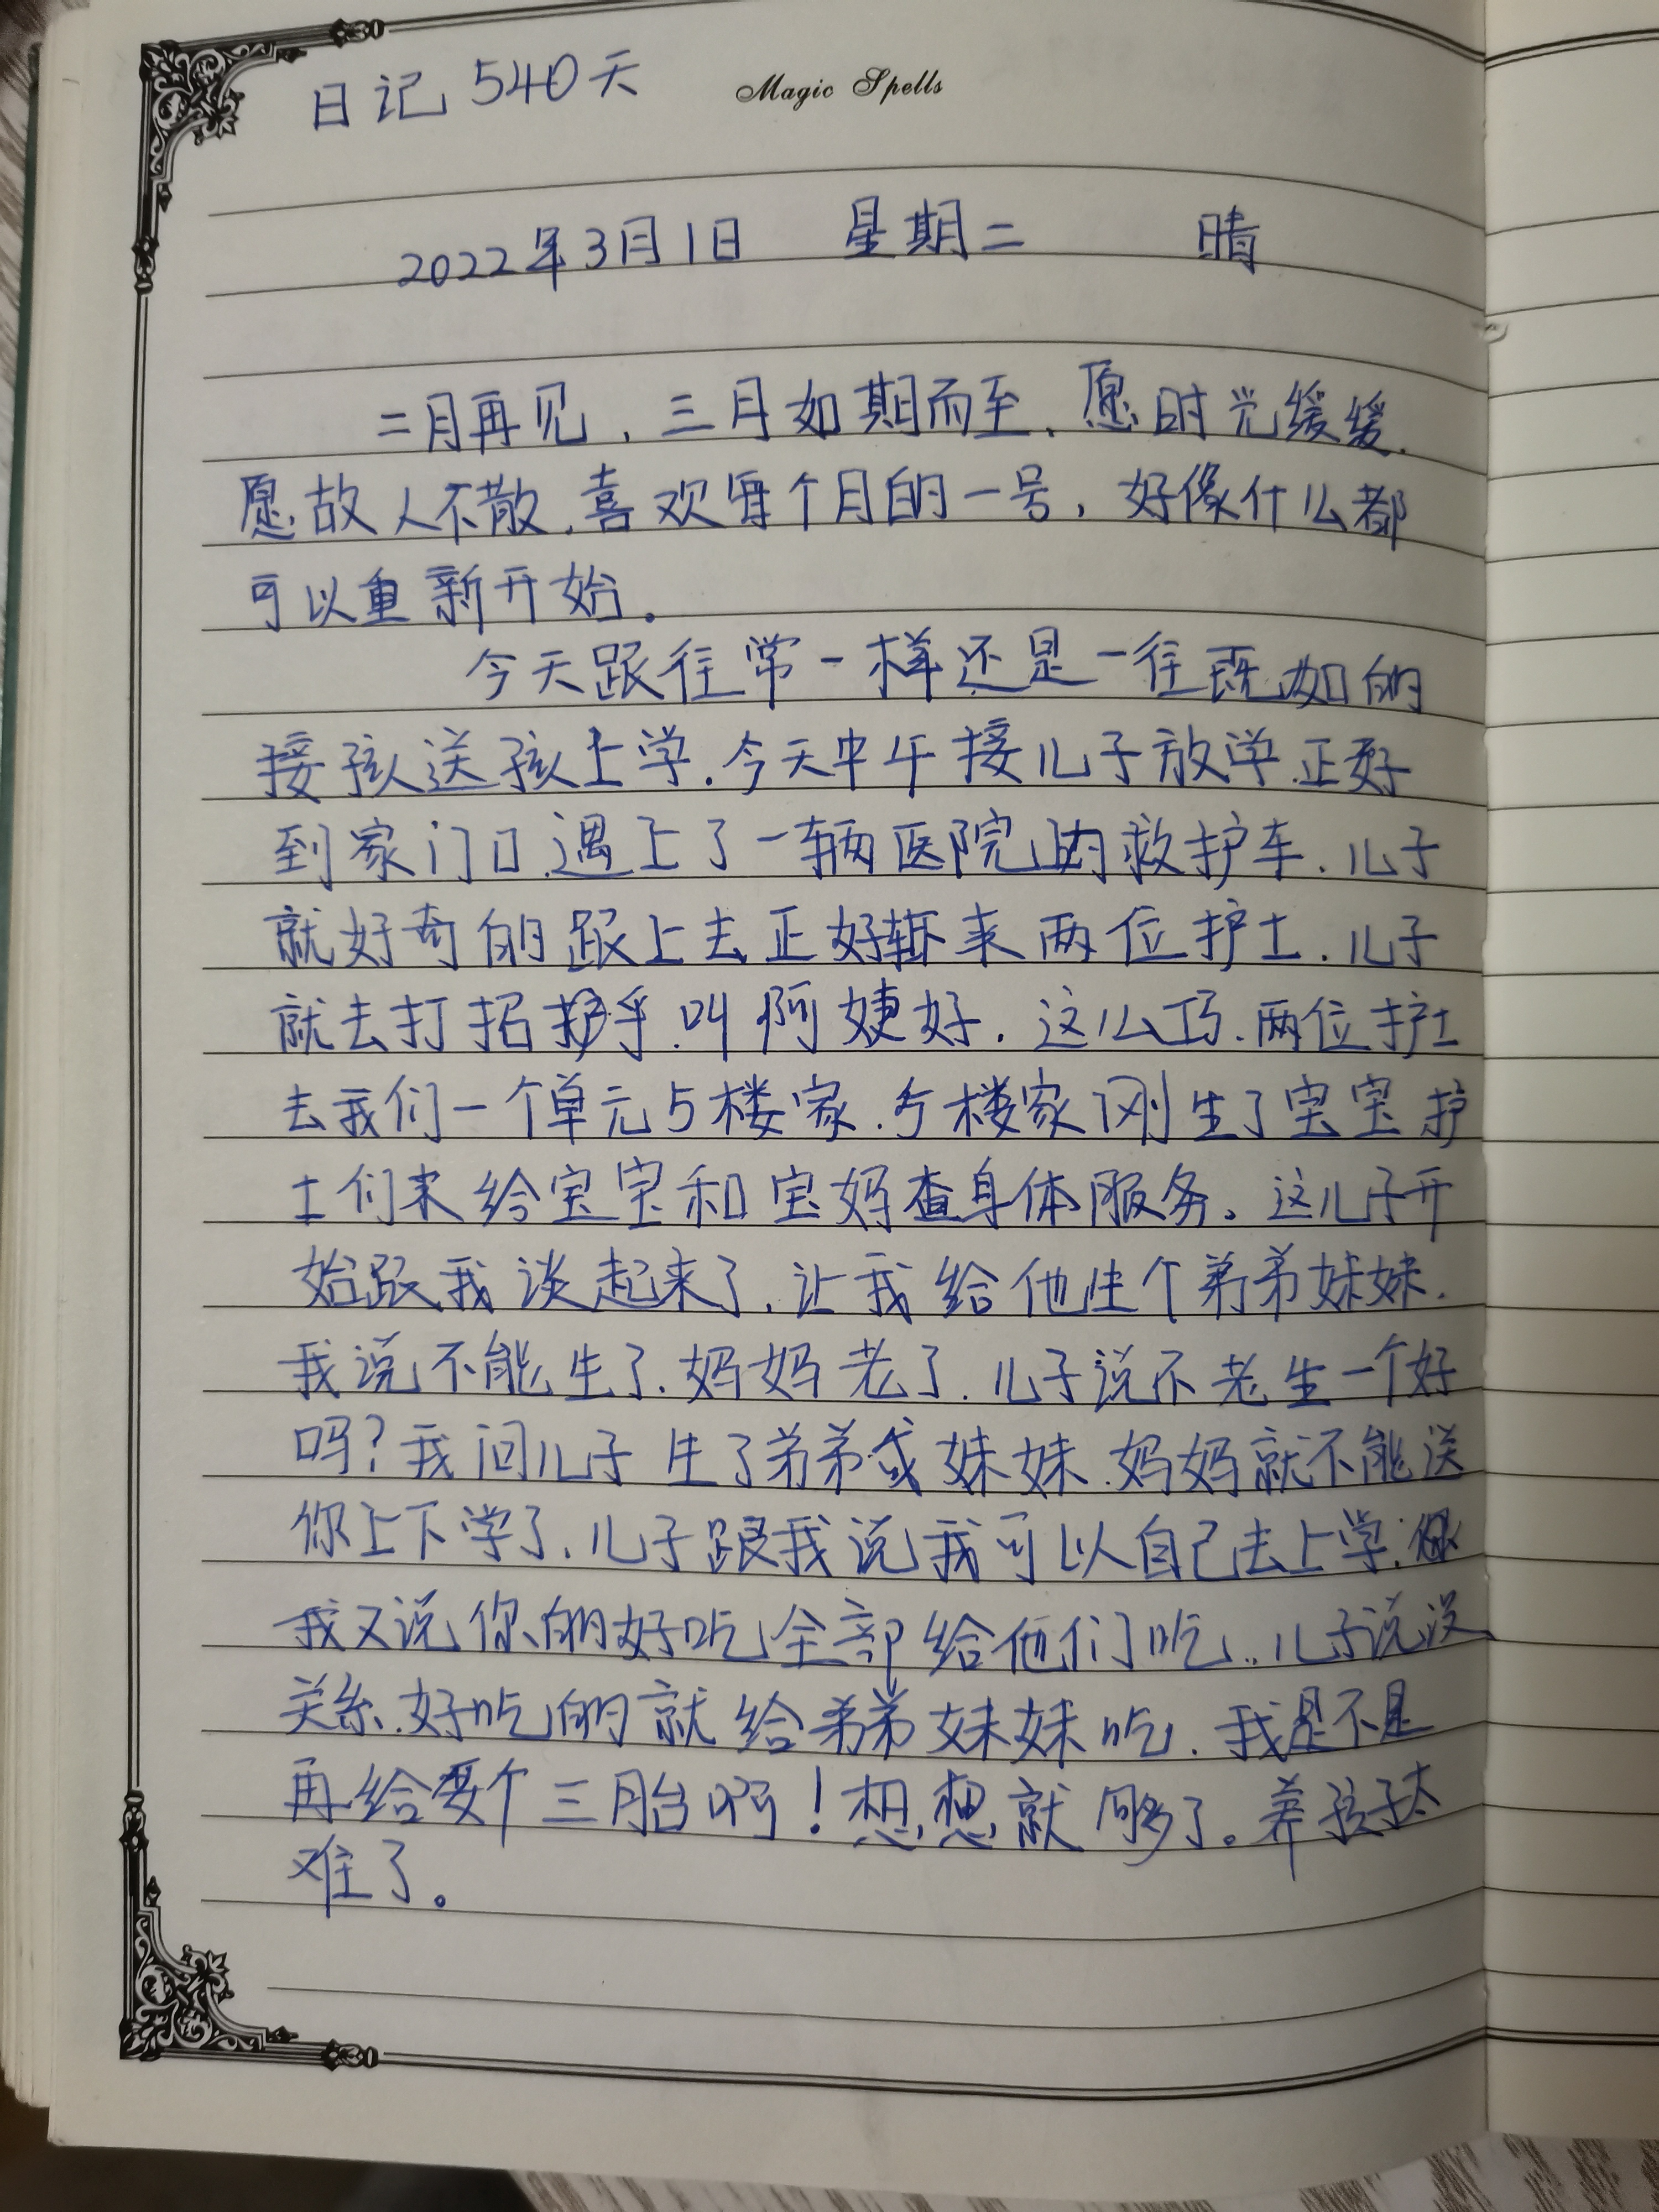 日记 540天
Magic Spells
2022年3月1日 星期二 晴
二月再见，三月如期而至、愿时光缓缓.
愿故人不散.喜欢每个月的一号，好像什么都
可以重新开始。
今天跟往常一样还是一往既如的
接孩送孩上学.今天中午接儿子放学.正好
到家门口.遇上了一辆医院的救护车.儿子
就好奇的跟上去正好下来两位护士.儿子
就去打招呼.叫阿姨好.这么巧.两位护士
去我们一个单元5楼家.5楼家刚生了宝宝护
士们来给宝宝和宝妈查身体服务。这儿子开
始跟我谈起来了.让我给他生个弟弟妹妹.
我说不能生了.妈妈老了.儿子说不老生一个好
吗?我问儿子生了弟弟或妹妹.妈妈就不能送
你上下学了.儿子跟我说我可以自己去上学.
我又说你的好吃全部给他们吃..儿子说没
关系.好吃的就给弟弟妹妹吃.我是不是
再给要个三胎啊!想想就够了。养孩子太
难了。